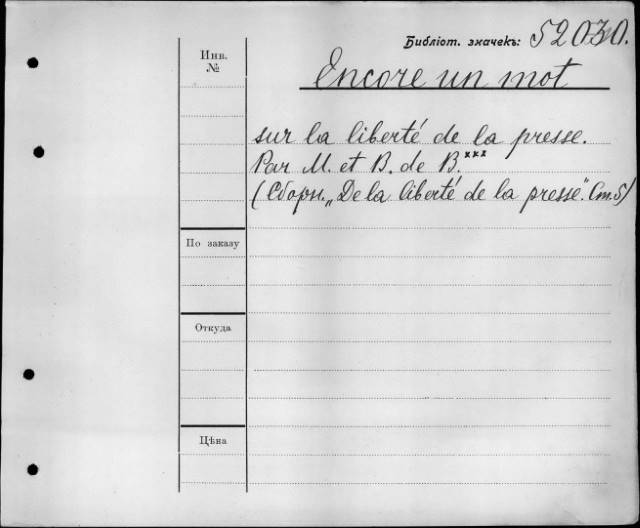 Библіот. значекъ: 52030.
Инв.
№
Encore un mot
sur la liberté de la presse.
Par M. et B. de B.***
(Сборн. „De la liberté de la presse". Ст. 5)
По заказу
Откуда
Цѣна